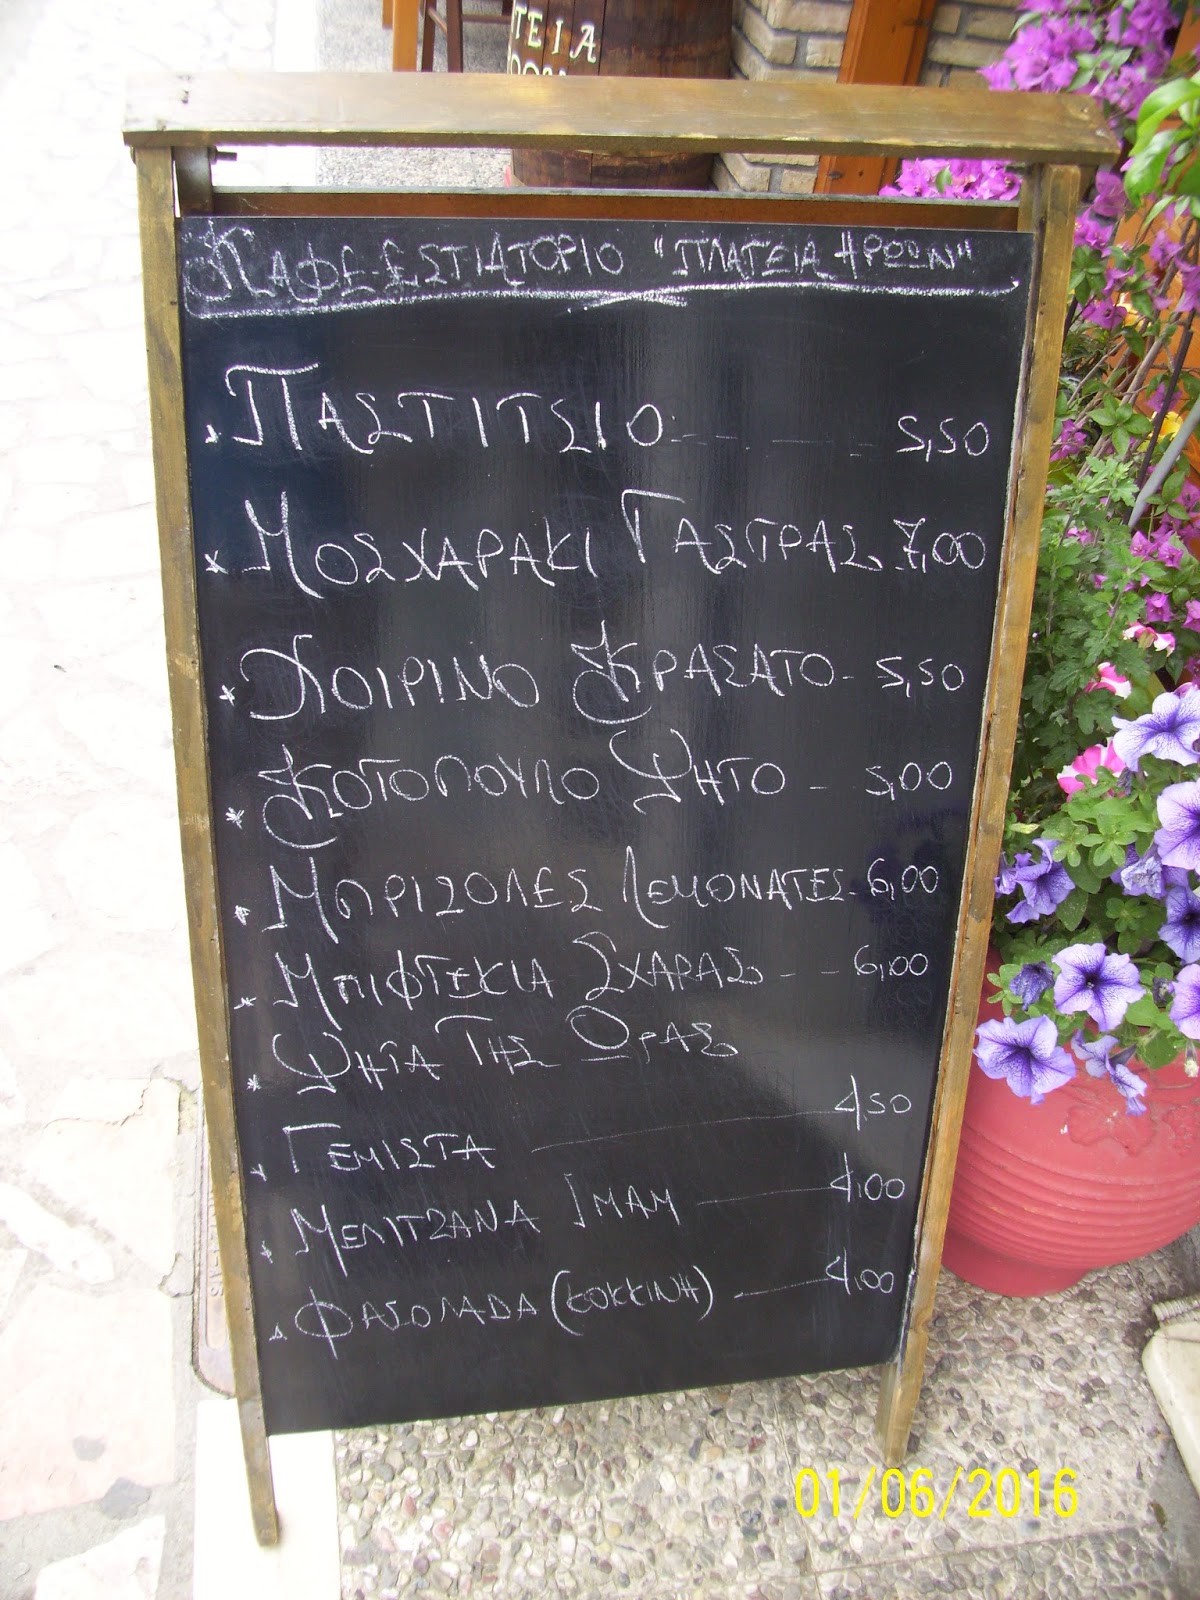 ΤΕΙΑ
ΚΑΦΕ ΕΣΤΙΑΤΟΡΙΟ "ΠΛΑΤΕΙΑ ΗΡΩΩΝ"
ΠΑΣΤΙΤΣΙΟ - - - - - 5,50
* ΜΟΣΧΑΡΑΚΙ ΓΑΣΤΡΑΣ - 7,00
* ΧΟΙΡΙΝΟ ΚΡΑΣΑΤΟ - 5,50
* ΚΟΤΟΠΟΥΛΟ ΨΗΤΟ - 5,00
* ΜΠΡΙΖΟΛΕΣ ΛΕΜΟΝΑΤΕΣ - 6,00
* ΜΠΙΦΤΕΚΙΑ ΣΧΑΡΑΣ - - 6,00
* ΨΗΤΑ ΤΗΣ ΩΡΑΣ
* ΓΕΜΙΣΤΑ — 4,50
* ΜΕΛΙΤΖΑΝΑ ΙΜΑΜ — 4,00
* ΦΑΣΟΛΑΔΑ (ΚΟΚΚΙΝΗ) — 4,00
01/06/2016